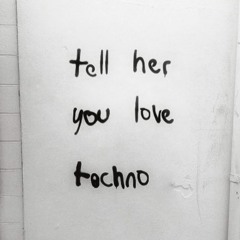 tell her
you love
techno